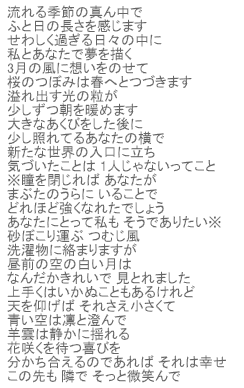 流れる季節の真ん中で
ふと日の長さを感じます
せわしく過ぎる日々の中に
私とあなたで夢を描く
3月の風に想いをのせて
桜のつぼみは春へとつづきます
溢れ出す光の粒が
少しずつ朝を暖めます
大きなあくびをした後に
少し照れてるあなたの横で
新たな世界の入口に立ち
気づいたことは 1人じゃないってこと
※瞳を閉じれば あなたが
まぶたのうらに いることで
どれほど強くなれたでしょう
あなたにとって私も そうでありたい※
砂ぼこり運ぶ つむじ風
洗濯物に絡まりますが
昼前の空の白い月は
なんだかきれいで 見とれました
上手くはいかぬこともあるけれど
天を仰げば それさえ小さくて
青い空は凛と澄んで
羊雲は静かに揺れる
花咲くを待つ喜びを
分かち合えるのであれば それは幸せ
この先も 隣で そっと微笑んで